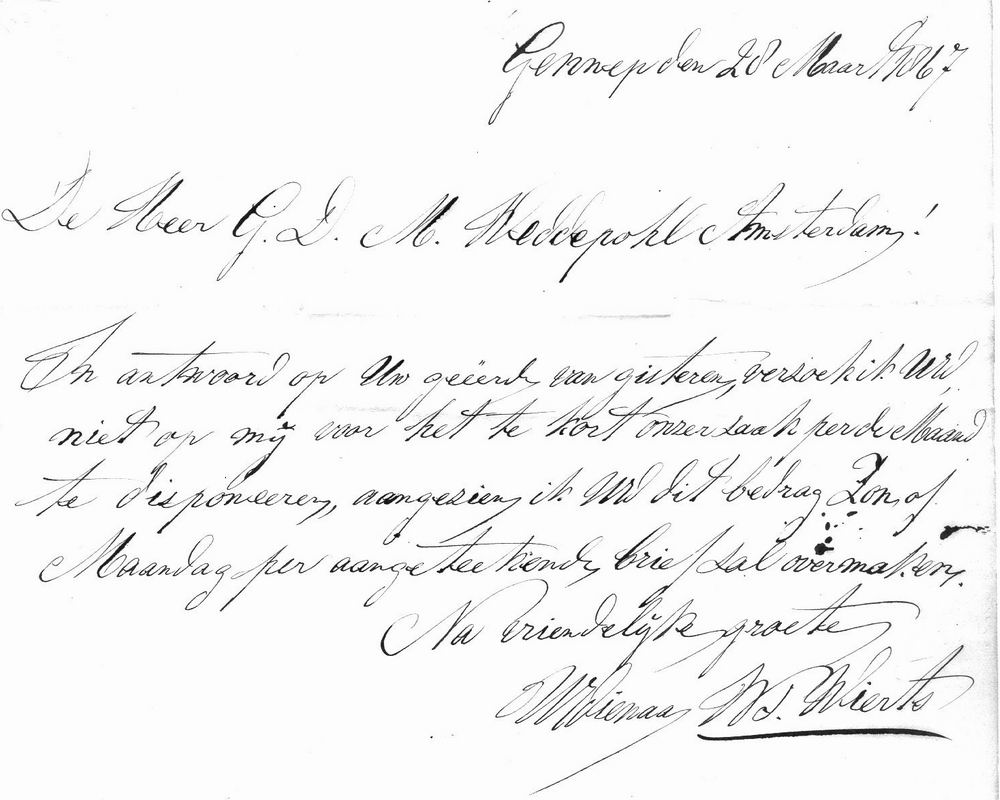 Gennep den 28 Maart 1867
De Heer G. D. M. Weddepohl Amsterdam!
In antwoord op Uw geëerde van gisteren, verzoek ik UEd,
niet op mij voor het te kort onzer zaak per de Maand
te disponeeren, aangezien ik UEd dit bedrag Zon of
Maandag per aangeteekende brief zal overmaken.
Na vriendelijke groete
UEdienaar W. J. Wierts